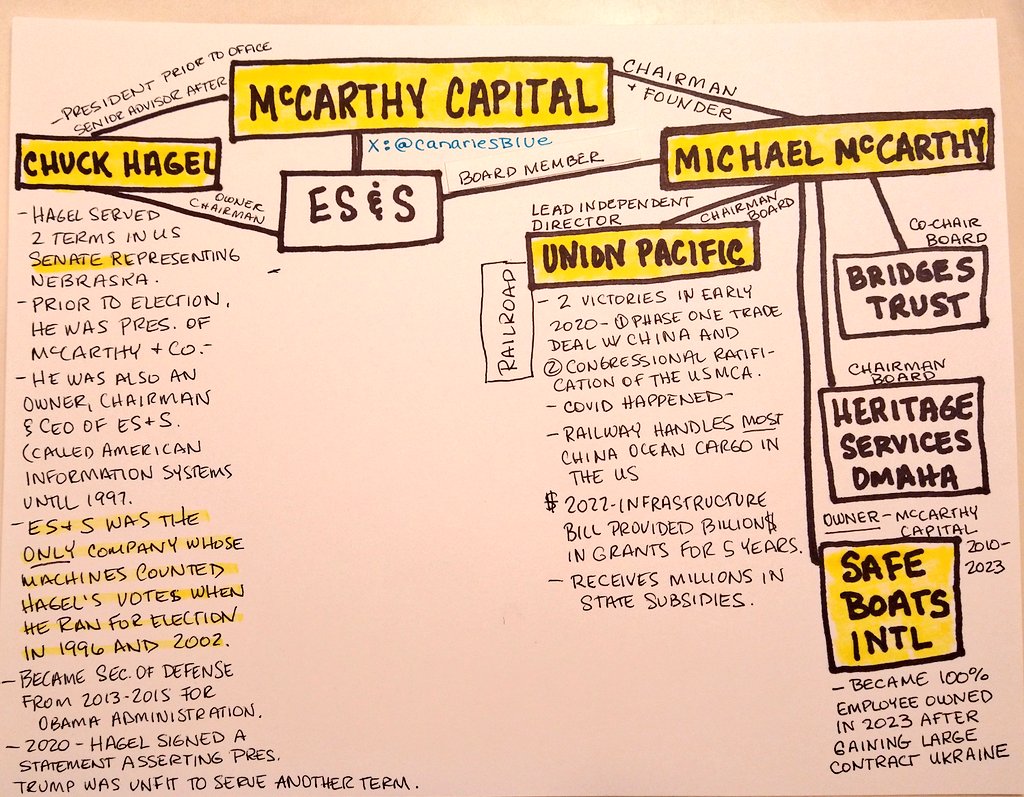 -PRESIDENT PRIOR TO OFFICE
SENIOR ADVISOR AFTER
McCARTHY CAPITAL
CHAIRMAN
+ FOUNDER
X:@canariesBlue
CHUCK HAGEL
OWNER
CHAIRMAN
ES&S
BOARD MEMBER
MICHAEL McCARTHY
- HAGEL SERVED
2 TERMS IN US
SENATE REPRESENTING
NEBRASKA.
- PRIOR TO ELECTION,
HE WAS PRES. OF
McCARTHY + CO.-
- HE WAS ALSO AN
OWNER, CHAIRMAN
& CEO OF ES+S.
(CALLED AMERICAN
INFORMATION SYSTEMS
UNTIL 1997.
- ES+S WAS THE
ONLY COMPANY WHOSE
MACHINES COUNTED
HAGEL'S VOTES WHEN
HE RAN FOR ELECTION
IN 1996 AND 2002.
- BECAME SEC. OF DEFENSE
FROM 2013-2015 FOR
OBAMA ADMINISTRATION.
- 2020 - HAGEL SIGNED A
STATEMENT ASSERTING PRES.
TRUMP WAS UNFIT TO SERVE ANOTHER TERM.
LEAD INDEPENDENT
DIRECTOR
CHAIRMAN
BOARD
UNION PACIFIC
RAILROAD
- 2 VICTORIES IN EARLY
2020- ① PHASE ONE TRADE
DEAL W/ CHINA AND
② CONGRESSIONAL RATIFI-
CATION OF THE USMCA.
- COVID HAPPENED-
- RAILWAY HANDLES MOST
CHINA OCEAN CARGO IN
THE US
$ 2022-INFRASTRUCTURE
BILL PROVIDED BILLION$
IN GRANTS FOR 5 YEARS.
- RECEIVES MILLIONS IN
STATE SUBSIDIES.
CO-CHAIR
BOARD
BRIDGES
TRUST
CHAIRMAN
BOARD
HERITAGE
SERVICES
OMAHA
OWNER-McCARTHY
CAPITAL
2010-
2023
SAFE
BOATS
INTL
- BECAME 100%
EMPLOYEE OWNED
IN 2023 AFTER
GAINING LARGE
CONTRACT UKRAINE